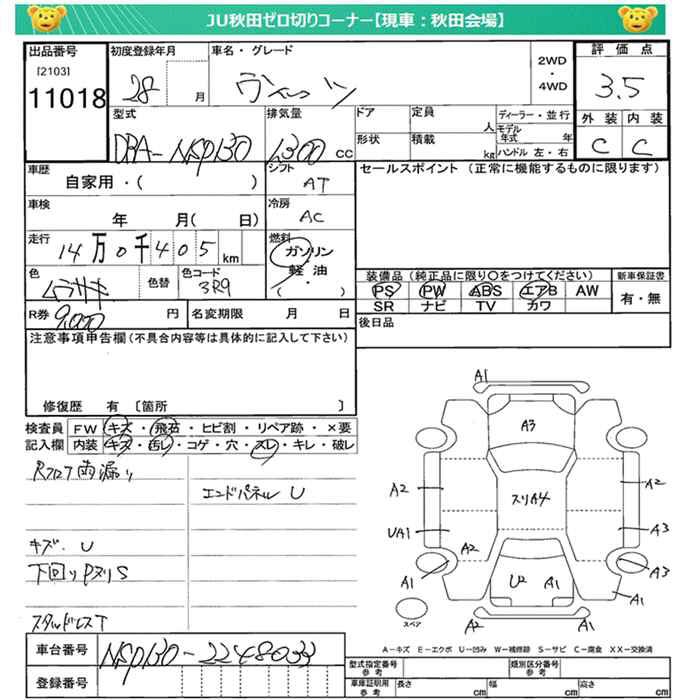 JU秋田ゼロ切りコーナー【現車：秋田会場】
出品番号 初度登録年月 車名・グレード 2WD ・ 4WD 評価点
[2103]
11018 28 月 ヴィッツ 3.5
型式 排気量 ドア 定員 人 ディーラー・並行 外装 内装
DBA-NSP130 1,300 CC 形状 積載 kg モデル年式 年 ハンドル 左・右 C C
車歴 シフト セールスポイント（正常に機能するものに限ります）
自家用・（ ） AT
車検 冷房
年 月（ 日） AC
走行 燃料
14万0千405km ガソリン
軽油
（・ ）
色 色替 色コード 装備品（純正品に限り〇をつけてください） 新車保証書
ムラサキ 3R9 PS PW ABS エアB AW 有・無
SR ナビ TV カワ
R券 9,000 円 名変期限 月 日 後日品
注意事項申告欄（不具合内容等は具体的に記入して下さい）
修復歴 有 〔箇所 〕
検査員 FW キズ・飛石・ヒビ割・リペア跡・×要
記入欄 内装 キズ・汚レ・コゲ・穴・スレ・キレ・破レ
Rフロア雨漏り
エンドパネル U
キズ．U
下回りPヌリS
スタッドレスT
A1
A3
A2 スリA4 A2
UA1 A2 A3
A1 U2 A1 A3
A1
スペア A2
A－キズ E－エクボ U－凹み W－補修跡 S－サビ C－腐食 XX－交換済
車台番号 NSP130-2248033 型式指定番号 参考 類別区分番号 参考
登録番号 車庫証明用 参考 長さ cm 幅 cm 高さ cm